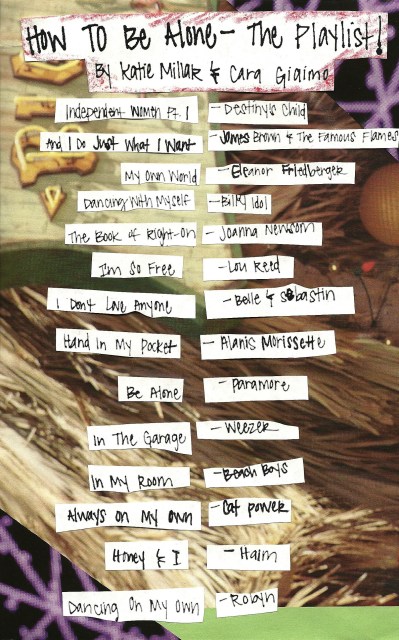 How To Be Alone - The Playlist!
By Katie Millar & Cara Giaimo
Independent Women Pt. 1 - Destiny's Child
And I Do Just What I Want - James Brown & The Famous Flames
My Own World - Eleanor Friedberger
Dancing With Myself - Billy Idol
The Book of Right-On - Joanna Newsom
I'm So Free - Lou Reed
I Don't Love Anyone - Belle & Sebastin
Hand In My Pocket - Alanis Morissette
Be Alone - Paramore
In The Garage - Weezer
In My Room - Beach Boys
Always on My Own - Cat Power
Honey & I - Haim
Dancing On My Own - Robyn